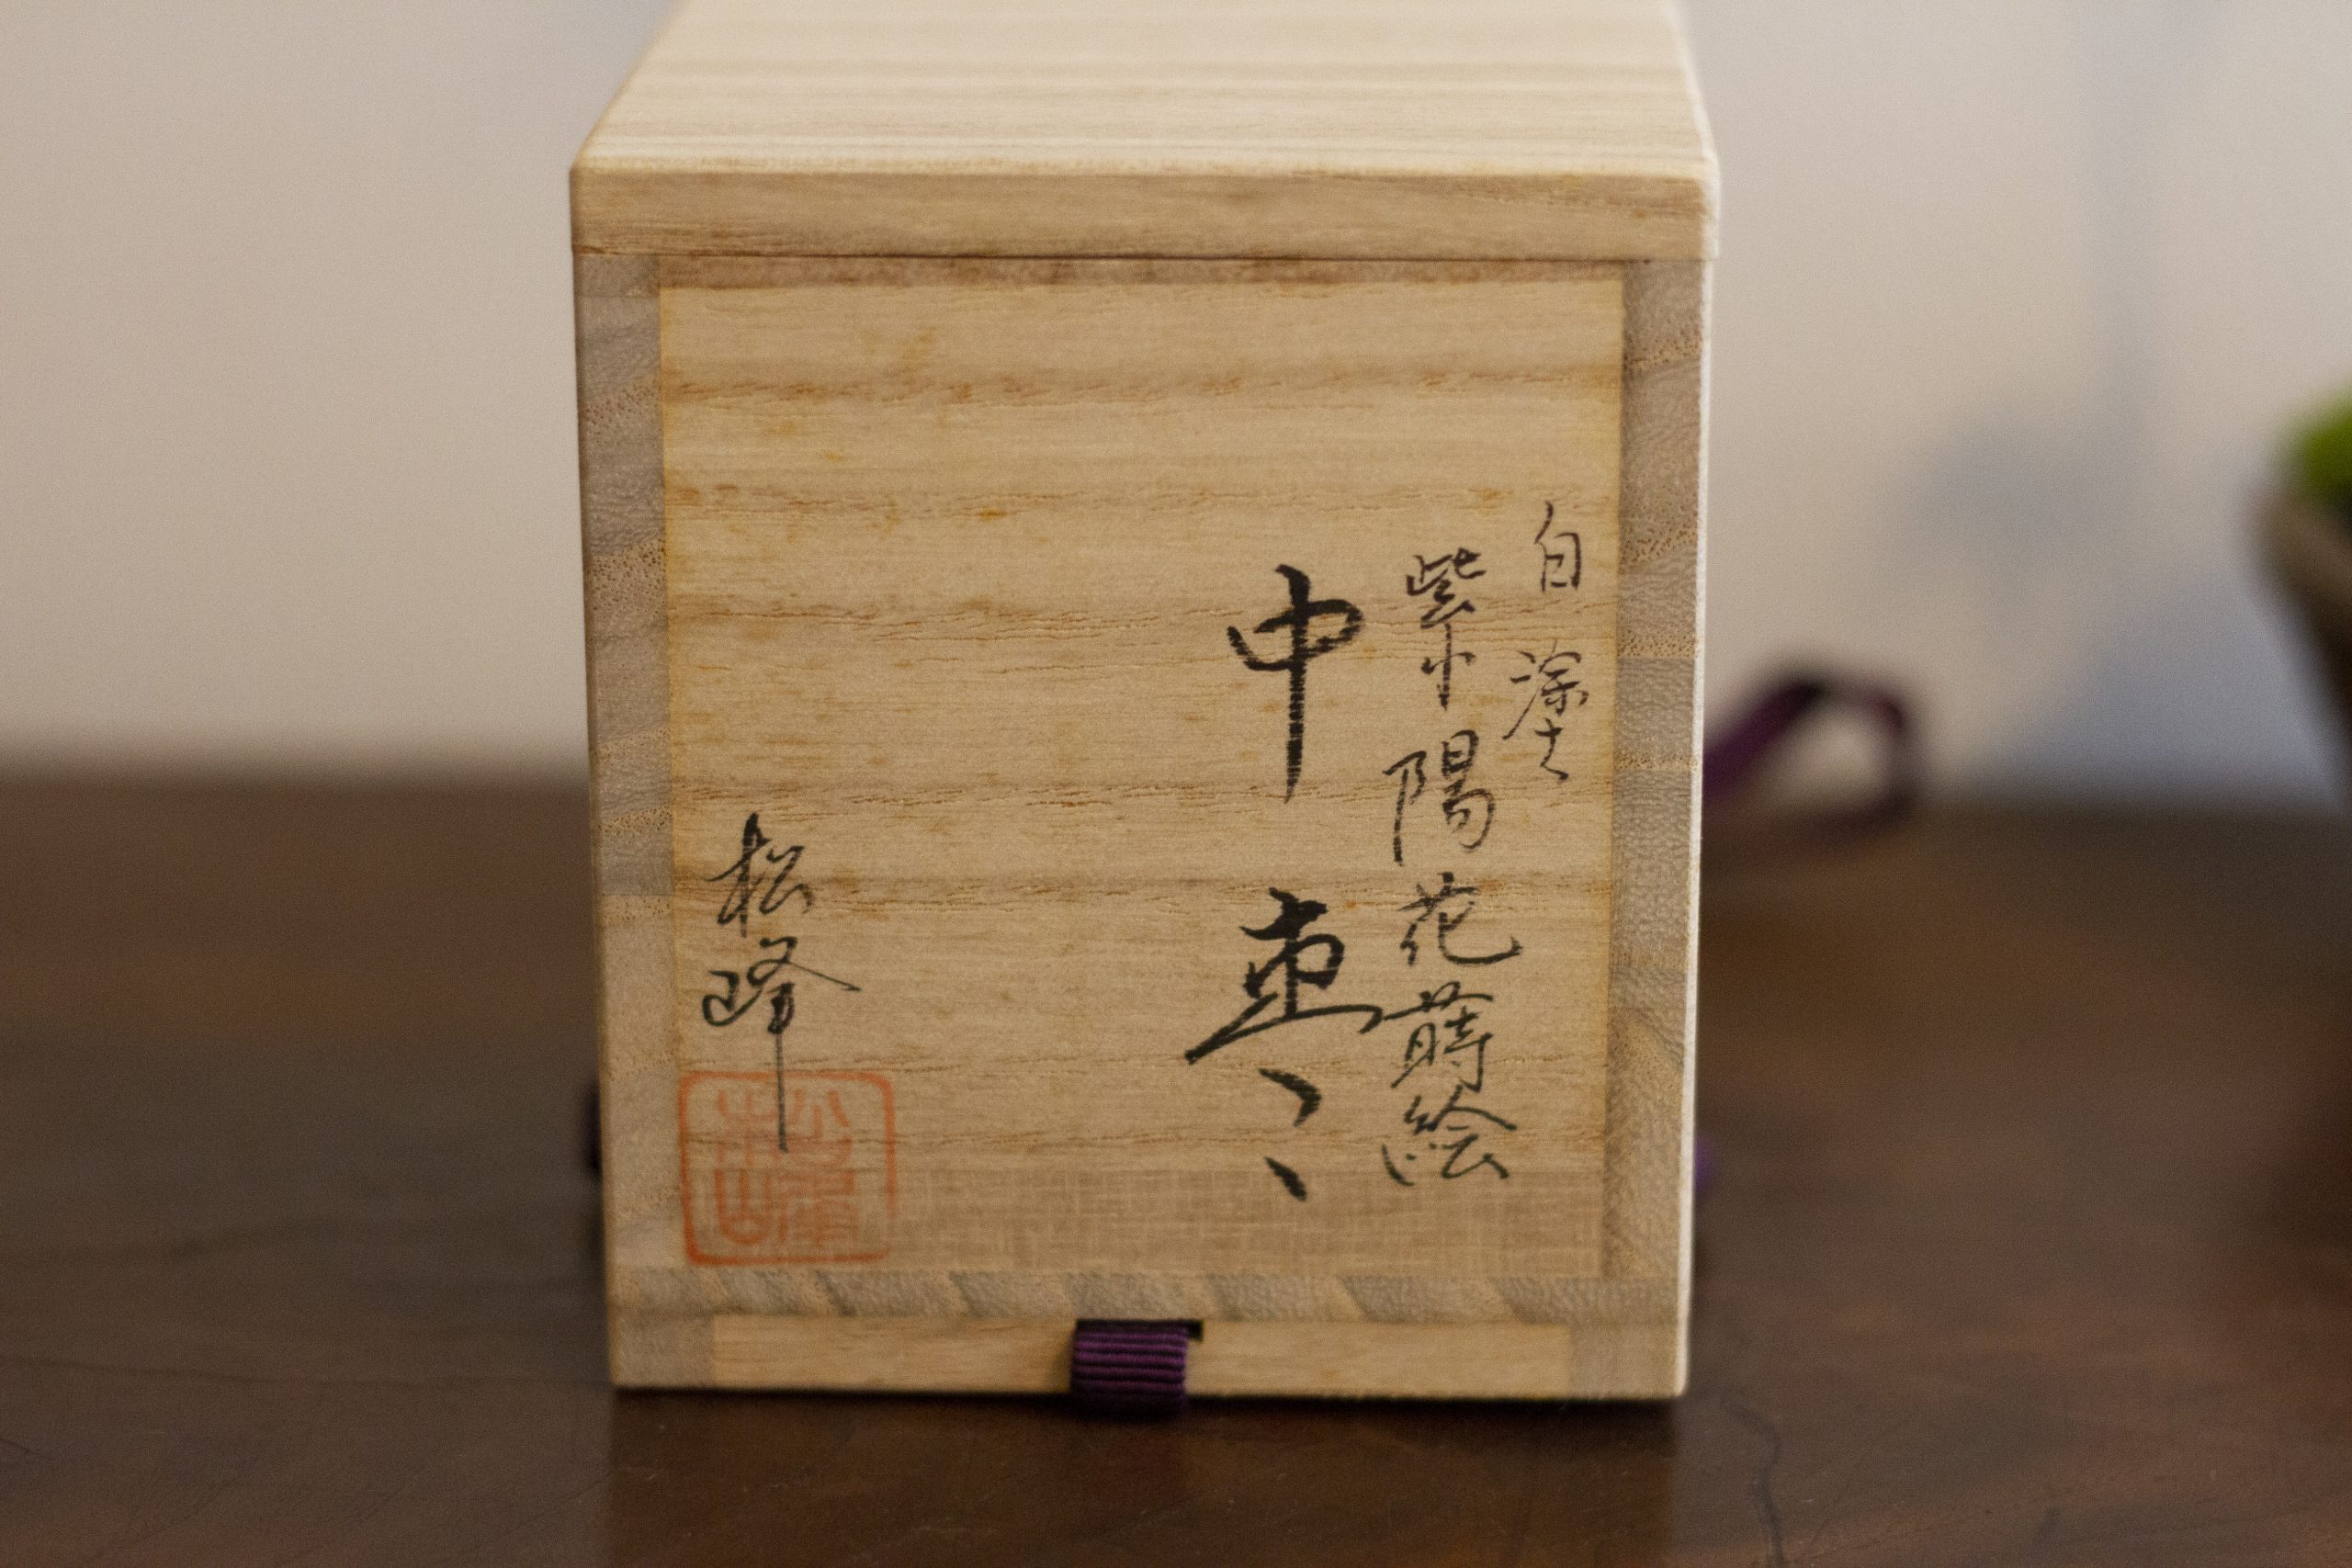 白塗
紫陽花蒔絵
中棗
松峰